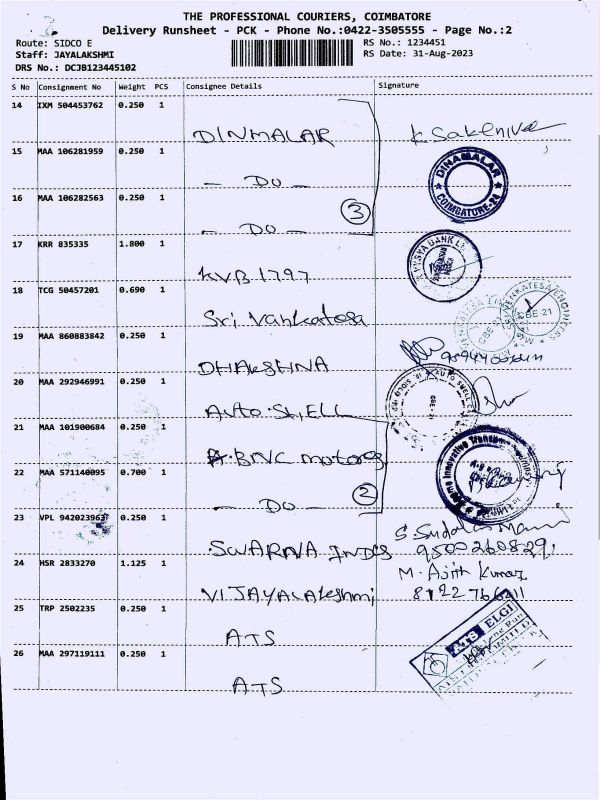 THE PROFESSIONAL COURIERS, COIMBATORE
Delivery Runsheet - PCK - Phone No.:0422-3505555 - Page No.:2
Route: SIDCO E
Staff: JAYALAKSHMI
DRS No.: DCJB123445102
RS No.: 1234451
RS Date: 31-Aug-2023
S No Consignment No Weight PCS Consignee Details Signature
14 IXM 504453762 0.250 1
DINMALAR
15 MAA 106281959 0.250 1
DINAMALAR
COIMBATORE-24
- DO -
16 MAA 106282563 0.250 1
3
- DO -
17 KRR 835335 1.800 1
VYSYA BANK
KVB 1797
18 TCG 50457201 0.690 1
Sri Vankatesa
VENKATESA ENGINEERS
CBE-21
19 MAA 860883842 0.250 1
DHAKSHNA
20 MAA 292946991 0.250 1
Auto SHELL
CBE-21
21 MAA 101900684 0.250 1
A. BNC motores
22 MAA 571140095 0.700 1
2
- DO -
23 VPL 942023963 0.250 1
SWARNA INDS
S. Sudalai Mani
9500260829
24 HSR 2833270 1.125 1
VIJAYALAkshmi
M. Ajith Kumar
8122766211
25 TRP 2502235 0.250 1
ATS
ATS ELGI
26 MAA 297119111 0.250 1
ATS